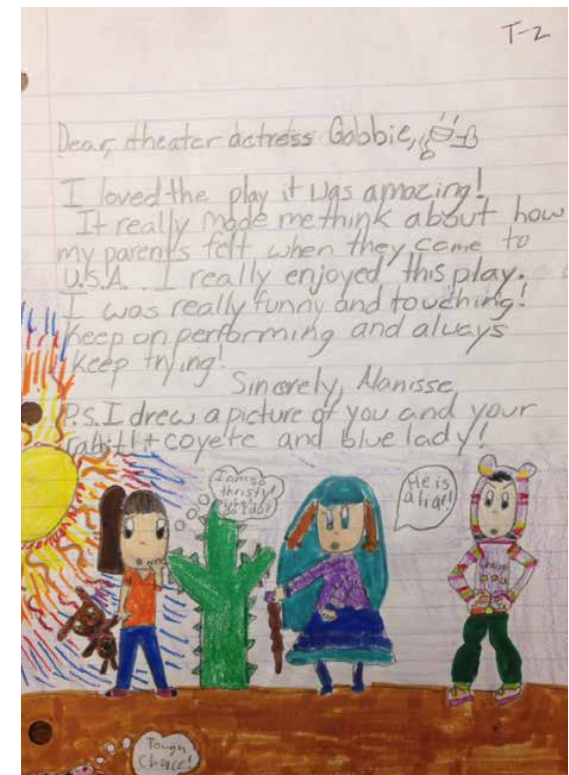 T-2
Dear, theater actress Gabbie,
I loved the play it was amazing!
It really made me think about how
my parents felt when they came to
U.S.A.. I really enjoyed this play.
I was really funny and touching!
Keep on performing and always
keep trying!
Sincerely, Alanisse,
P.S. I drew a picture of you and your
rabitt + coyete and blue lady!
I am so
thristy!
What
do I do?
He is
a liar!
Tough
Choice!